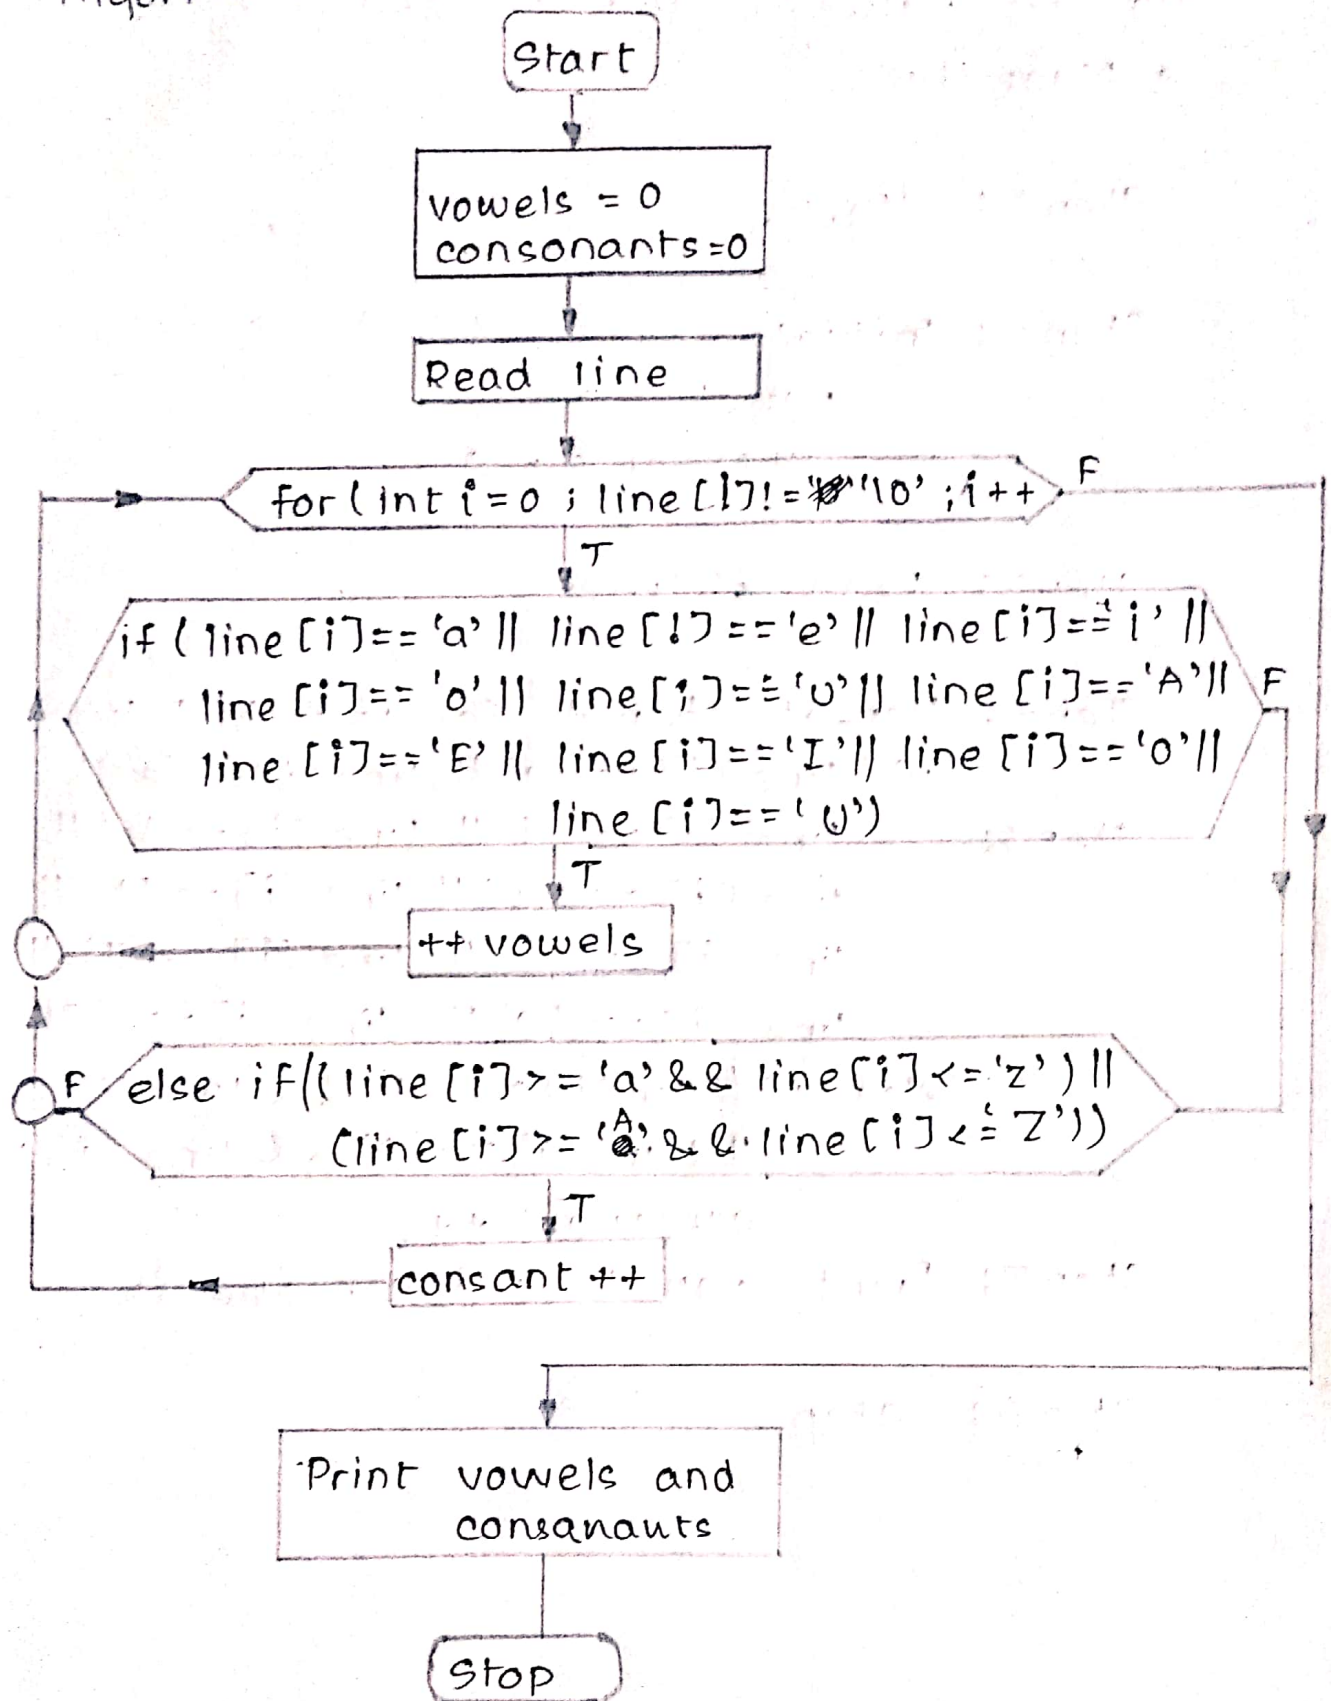 Start
vowels = 0
consonants=0
Read line
for(int i=0; line[i]!='\0';i++
F
T
if(line[i]=='a'|| line[i]=='e'|| line[i]=='i'||
line[i]=='o'|| line[i]=='u'|| line[i]=='A'||
F
line[i]=='E'|| line[i]=='I'|| line[i]=='O'||
line[i]=='U')
T
++vowels
F
else if((line[i]>='a'&& line[i]<='z')||
(line[i]>='A'&&line[i]<='Z'))
T
consant++
Print vowels and
consanauts
Stop